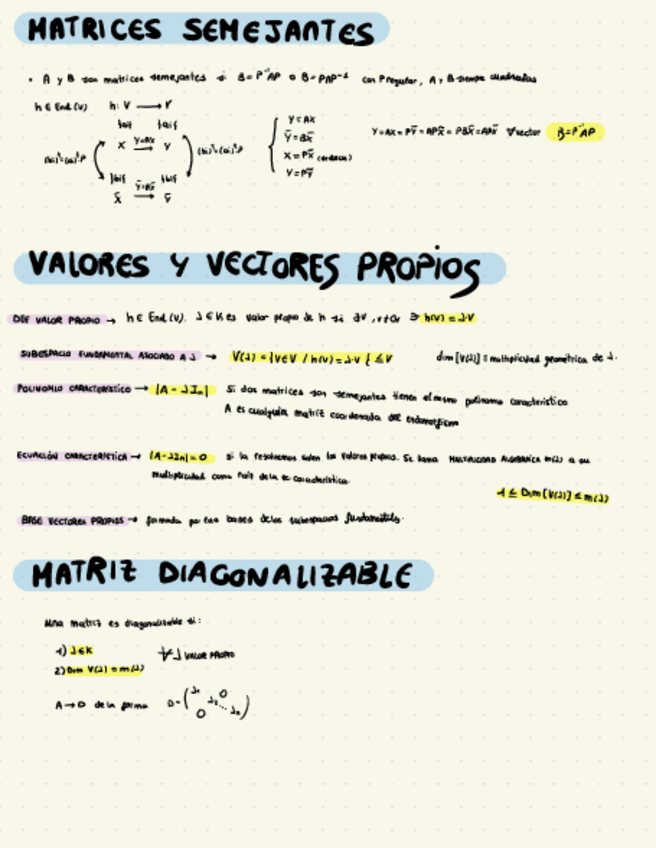 MATRICES SEMEJANTES
• A y B son matrices semejantes si B=P⁻¹AP o B=PAP⁻¹ con P regular, A y B siempre cuadradas
h ∈ End(V) h: V → V
X Y=AX Y
Ȳ=BX̄
X̄ → Ȳ
Y=AX
Ȳ=BX̄
X=PX̄
Y=PȲ
Y=AX=PȲ=APX̄=PBX̄=APX̄ ∀vector B=P⁻¹AP
VALORES Y VECTORES PROPIOS
DEF VALOR PROPIO → h ∈ End(V). λ∈K es valor propio de h si ∃v, v≠0v ∋ h(v)=λ·v
SUBESPACIO FUNDAMENTAL ASOCIADO A λ → V(λ)={v∈V / h(v)=λ·v} ≤V dim[V(λ)] ≡ multiplicidad geométrica de λ.
POLINOMIO CARACTERÍSTICO → |A-λIn| Si dos matrices son semejantes tienen el mismo polinomo característico
A es cualquier matriz coordenada del endomorfismo
ECUACIÓN CARACTERÍSTICA → |A-λIn|=0 si la resolvemos salen los valores propios. Se llama MULTIPLICIDAD ALGEBRAICA m(λ) a su
multiplicidad como raíz de la ec característica.
1 ≤ Dim[V(λ)] ≤ m(λ)
BASE VECTORES PROPIOS → formada por las bases de los subespacios fundamentales.
MATRIZ DIAGONALIZABLE
Una matriz es diagonalizable si:
1) λ∈K ∀λ VALOR PROPIO
2) Dim V(λ) = m(λ)
A→D de la forma D=(λ₁ 0 λ₂ ... 0 λn)